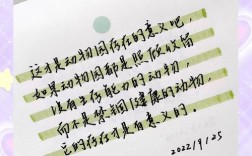 这才是动物园存在的意义吧,
如果动物园都是照顾收留
没有生存能力的动物,
而不是猎捕健康的动物,
它的存在才是有意义的。
2022/9/25